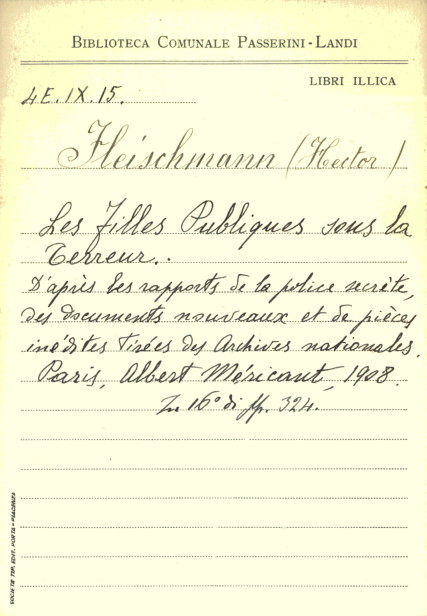 BIBLIOTECA COMUNALE PASSERINI-LANDI
LIBRI ILLICA
4E.IX.15.
Fleischmann (Hector)
Les Filles Publiques sous la
Terreur..
D'après les rapports de la police secrète,
des documents nouveaux et de pièces
inédites tirées des Archives nationales.
Paris, Albert Méricant, 1908.
In 16° di pp. 324.